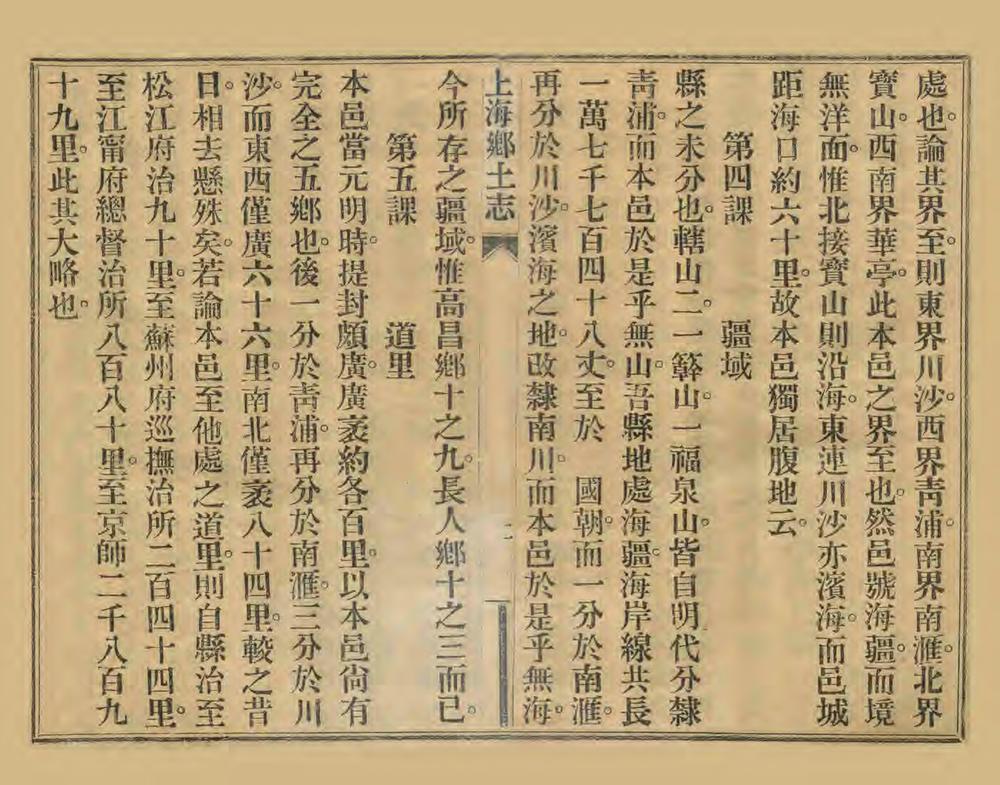 處也。論其界至。則東界川沙。西界靑浦。南界南滙。北界
寶山。西南界華亭。此本邑之界至也。然邑號海疆。而境
無洋面。惟北接寶山則沿海。東連川沙亦濱海。而邑城
距海口約六十里。故本邑獨居腹地云。
第四課　疆域
縣之未分也。轄山二。一簳山。一福泉山。皆自明代分隸
靑浦。而本邑於是乎無山。吾縣地處海疆。海岸線共長
一萬七千七百四十八丈。至於　國朝。而一分於南滙。
再分於川沙。濱海之地。改隸南川。而本邑於是乎無海。
上海鄕土志　二
今所存之疆域。惟高昌鄕十之九。長人鄕十之三而已。
第五課　道里
本邑當元明時。提封頗廣。廣袤約各百里。以本邑尙有
完全之五鄕也。後一分於靑浦。再分於南滙。三分於川
沙。而東西僅廣六十六里。南北僅袤八十四里。較之昔
日。相去懸殊矣。若論本邑至他處之道里。則自縣治至
松江府治九十里。至蘇州府巡撫治所二百四十四里。
至江甯府總督治所八百八十里。至京師二千八百九
十九里。此其大略也。